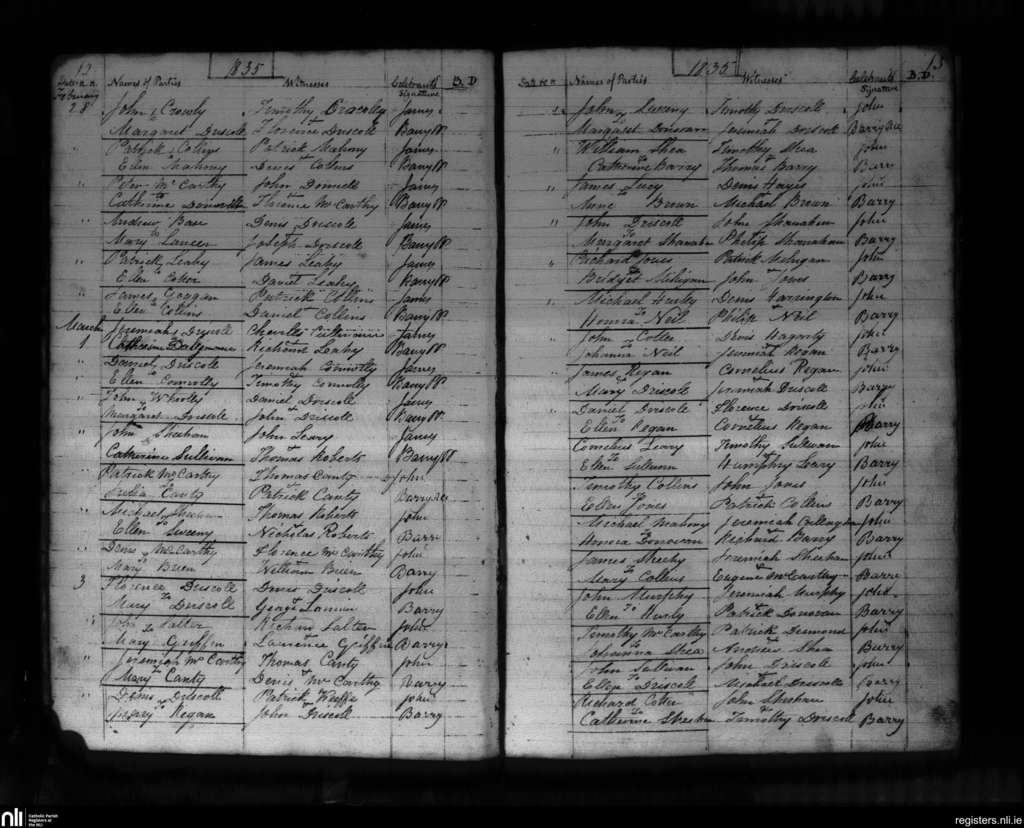 12
1835
Date Names of Parties Witnesses Celebrant's Signature B. D
February
28 John Crowly Timothy Driscoll James
to
Margaret Driscoll Florence Driscoll Barry PP
" Patrick Collins Patrick Mahony James
Ellen Mahony Denis Collins Barry PP
" Peter McCarthy John Donnell James
to
Catherine Florence McCarthy Barry PP
" Andrew Denis Driscoll James
to
Mary Joseph Driscoll Barry PP
" Patrick Leahy James Leahy James
Ellen Daniel Leahy Barry PP
" James Goggan Patrick Collins James
Ellen Collins Daniel Collins Barry PP
March
1 Jeremiah Driscoll Charles James
Catherine Richard Leahy Barry PP
" Daniel Driscoll Jeremiah Connolly James
Ellen Connolly Timothy Connolly Barry PP
" John Daniel Driscoll James
Margaret Driscoll John Driscoll Barry PP
" John Sheehan John Leary James
Catherine Sullivan Thomas Roberts Barry PP
" Patrick McCarthy Thomas Canty John
Julia Canty Patrick Canty Barry
" Michael Thomas Roberts John
Ellen Sweeny Nicholas Roberts Barry
" Denis McCarthy Florence McCarthy John
Mary Breen William Breen Barry
3 Florence Driscoll Denis Driscoll John
to
Mary Driscoll George Barry
" John Salter Richard Salter John
to
Mary Griffin Laurence Griffin Barry
" Jeremiah McCarthy Thomas Canty John
to
Mary Canty Denis McCarthy Barry
" Denis Driscoll Patrick Keeffe John
to
Mary Regan John Driscoll Barry
13
1835
Names of Parties Witnesses Celebrant's Signature B. D.
John Sweeny Timothy Driscoll John
Margaret Donovan Jeremiah Driscoll Barry
" William Shea Timothy Shea John
to
Catherine Barry Thomas Barry Barry
" James Lucy Denis Hayes John
to
Anne Brown Michael Brown Barry
" John Driscoll John Shanahan John
to
Margaret Shanahan Philip Shanahan Barry
" Richard Jones Patrick Milligan John
Bridget Milligan John Jones Barry
" Michael Hurly Denis Harrington John
to
Honora Neil Philip Neil Barry
" John Cotter Denis Hagarty John
to
Johanna Neil Jeremiah Regan Barry
" James Regan Cornelius Regan John
to
Mary Driscoll Jeremiah Driscoll Barry
" Daniel Driscoll Florence Driscoll John
To
Ellen Regan Cornelius Regan Barry
Cornelius Leary Timothy Sullivan John
To
Ellen Sullivan Humphry Leary Barry
Timothy Collins John Jones John
to
Ellen Jones Patrick Collins Barry
Michael Mahony Jeremiah Callaghan John
to
Honora Donovan Richard Barry Barry
James Sheehy Jeremiah Sheehan John
to
Mary Collins Eugene McCarthy Barry
John Murphy Jeremiah Murphy John
To
Ellen Hurly Patrick Donovan Barry
Timothy McCarthy Patrick Desmond John
to
Johanna Shea Andrew Shea Barry
John Sullivan John Driscoll John
To
Ellen Driscoll Michael Driscoll Barry
Richard Cotter John Sheehan John
To
Catherine Sheehan Timothy Driscoll Barry
nli
Catholic Parish
Registers at
the NLI
registers.nli.ie